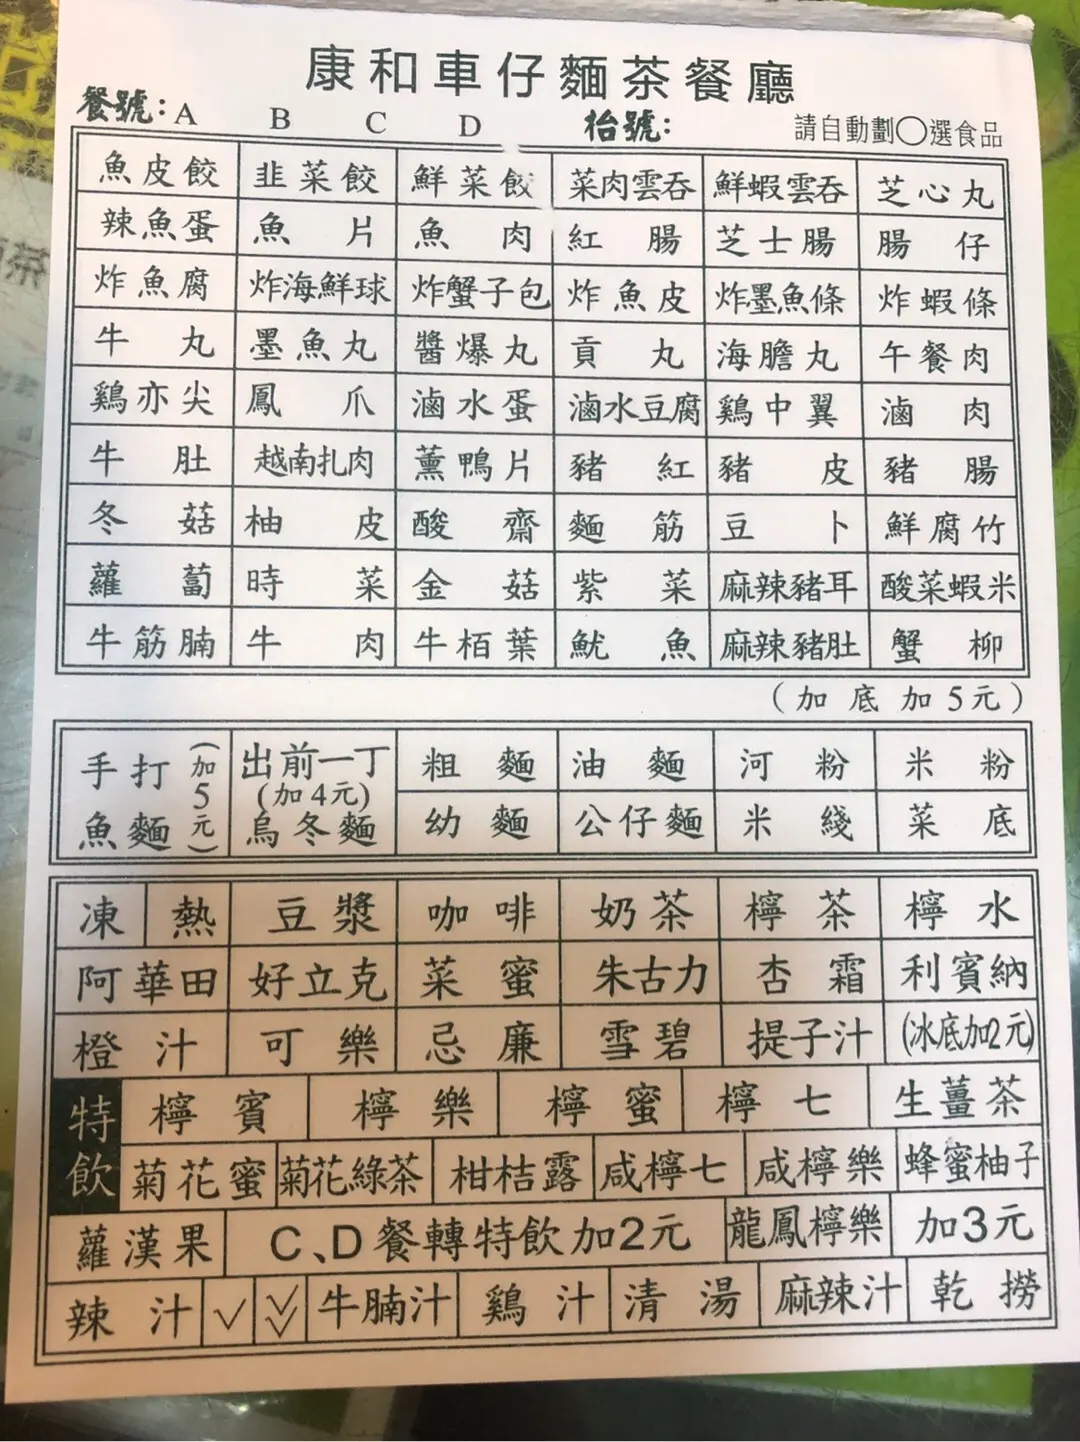 康和車仔麵茶餐廳
餐號：A B C D 枱號： 請自動劃〇選食品
魚皮餃 韭菜餃 鮮菜餃 菜肉雲吞 鮮蝦雲吞 芝心丸
辣魚蛋 魚片 魚肉 紅腸 芝士腸 腸仔
炸魚腐 炸海鮮球 炸蟹子包 炸魚皮 炸墨魚條 炸蝦條
牛丸 墨魚丸 醬爆丸 貢丸 海膽丸 午餐肉
鷄亦尖 鳳爪 滷水蛋 滷水豆腐 鷄中翼 滷肉
牛肚 越南扎肉 薰鴨片 豬紅 豬皮 豬腸
冬菇 柚皮 酸齋 麵筋 豆卜 鮮腐竹
蘿蔔 時菜 金菇 紫菜 麻辣豬耳 酸菜蝦米
牛筋腩 牛肉 牛栢葉 魷魚 麻辣豬肚 蟹柳
（加底加5元）
手打魚麵（加5元） 出前一丁（加4元）烏冬麵 粗麵 油麵 河粉 米粉
幼麵 公仔麵 米綫 菜底
凍 熱 豆漿 咖啡 奶茶 檸茶 檸水
阿華田 好立克 菜蜜 朱古力 杏霜 利賓納
橙汁 可樂 忌廉 雪碧 提子汁 (冰底加2元)
特飲 檸賓 檸樂 檸蜜 檸七 生薑茶
菊花蜜 菊花綠茶 柑桔露 咸檸七 咸檸樂 蜂蜜柚子
蘿漢果 C、D餐轉特飲加2元 龍鳳檸樂 加3元
辣汁 ✓ ✓✓ 牛腩汁 鷄汁 清湯 麻辣汁 乾撈